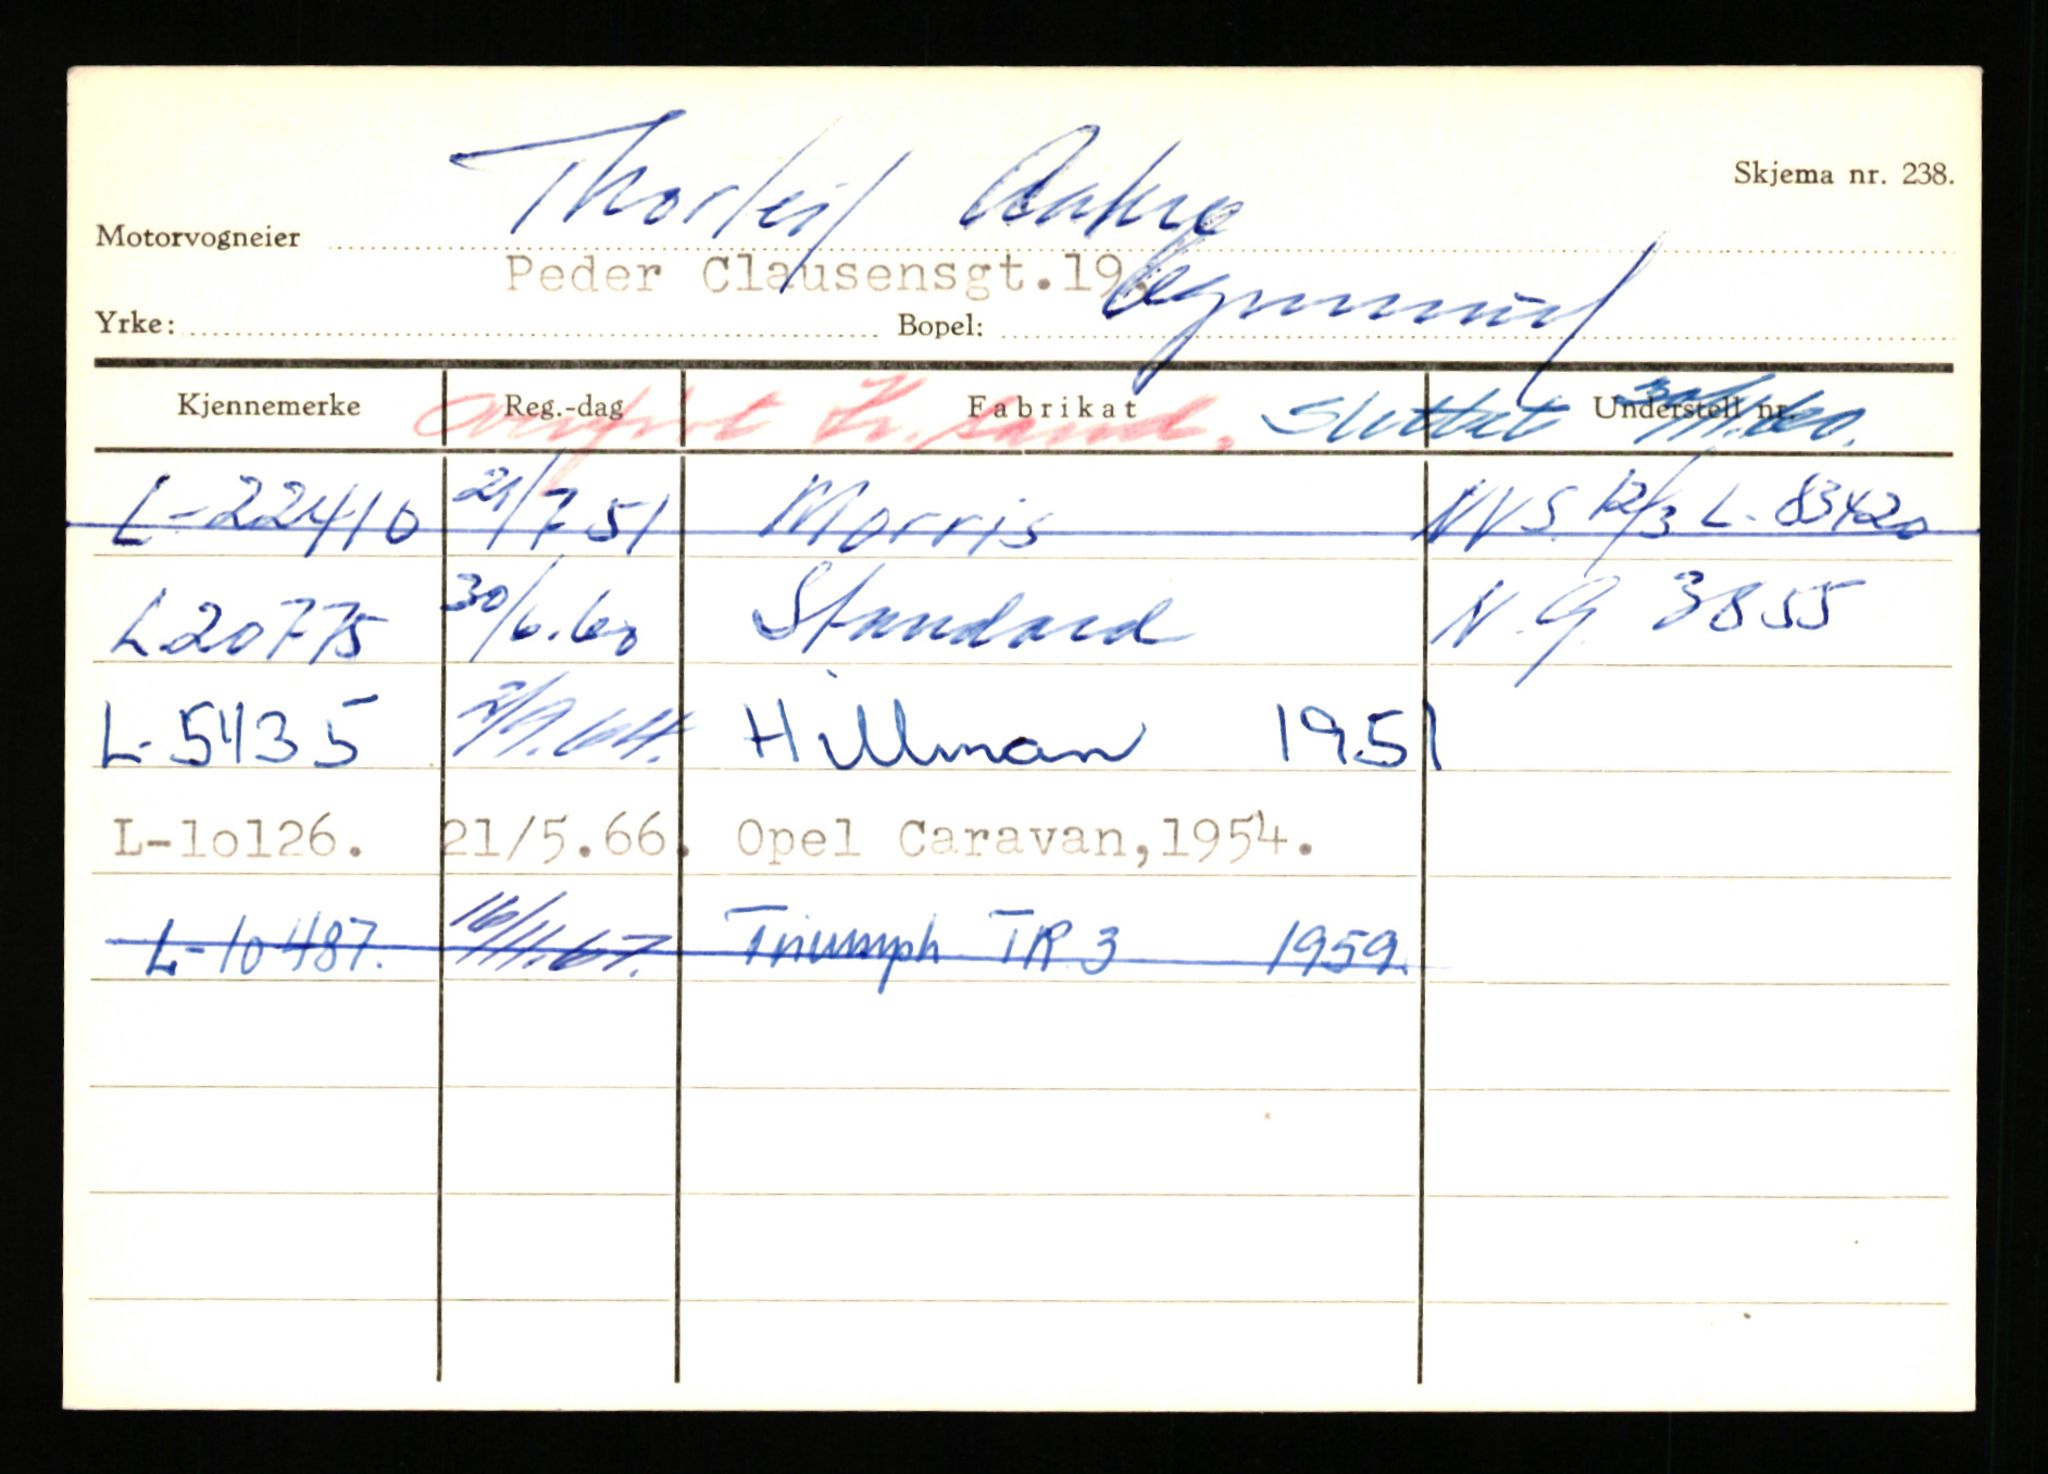 Skjema nr. 238.
Motorvogneier Thorleif Aakre
Peder Clausensgt.19.
Yrke: Bopel: Egersund
Kjennemerke Reg.-dag Fabrikat Understell nr.
Kr. sand. Slettet
L-22410 21/7 51 Morris NVS. 12/3 L-83420
L20775 30/6.60 Standard N.G. 3855
L-5435 2/9.64. Hillman 1951
L-10126. 21/5.66. Opel Caravan,1954.
L-10487. 16/11.67. Triumph TR 3 1959.